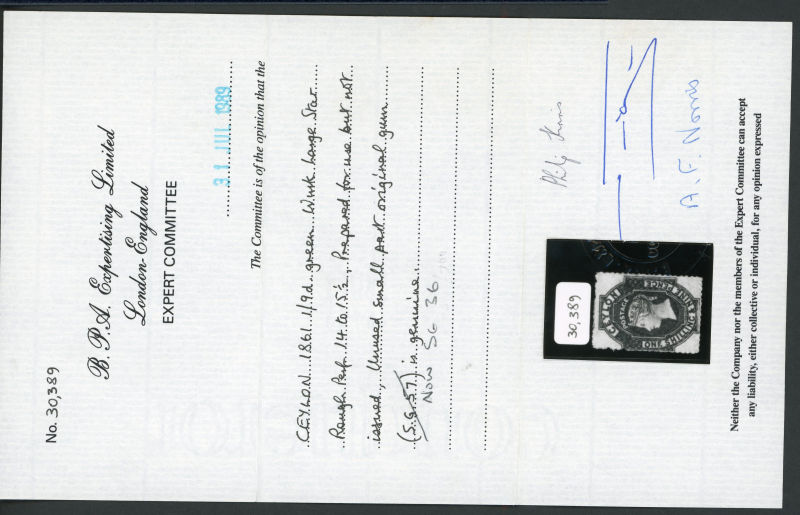 No. 30,389
B. P. A. Expertising Limited
London-England
EXPERT COMMITTEE
31 JUL 1989
The Committee is of the opinion that the
CEYLON 1861 1/9d green Wmk Large Star
Rough Perf. 14 to 15½, Prepared for use but not
issued, Unused small part original gum
(S.G.57) is genuine.
NOW SG 36
A. F. Norris
30,389
CEYLON
POSTAGE
ONE SHILLING NINE PENCE
Neither the Company nor the members of the Expert Committee can accept
any liability, either collective or individual, for any opinion expressed